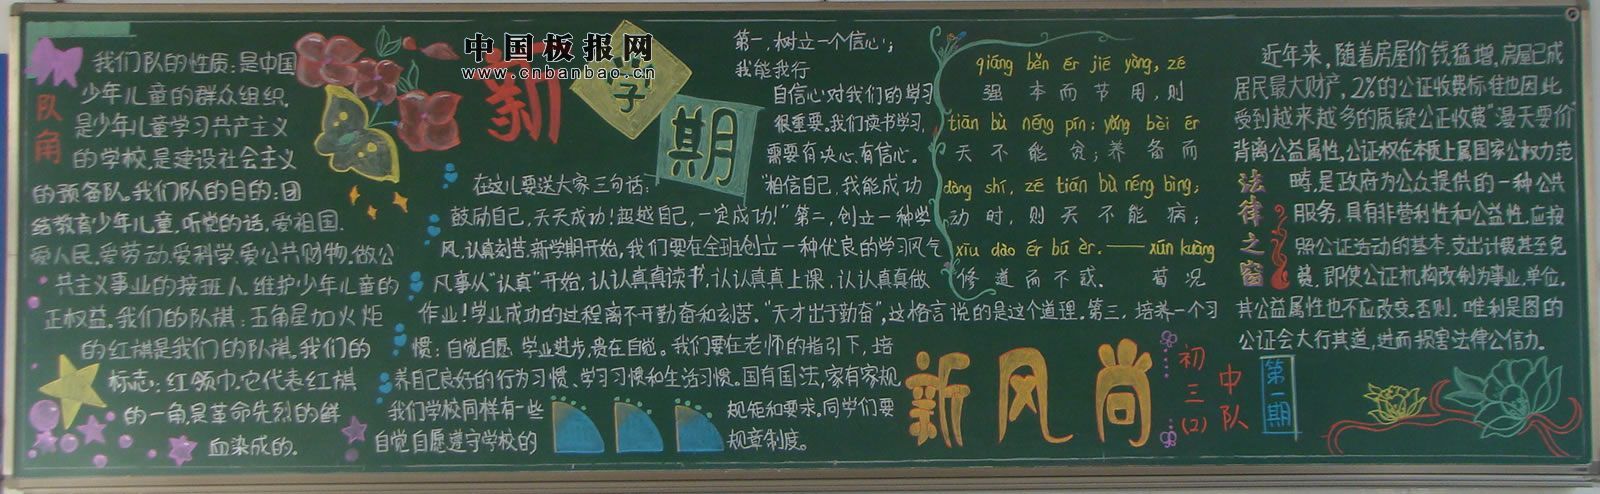 中国板报网
www.cnbanbao.cn
队角
我们队的性质:是中国
少年儿童的群众组织.
是少年儿童学习共产主义
的学校.是建设社会主义
的预备队。我们队的目的:团
结教育少年儿童,听党的话.爱祖国.
爱人民.爱劳动.爱科学.爱公共财物.做公
共主义事业的接班人.维护少年儿童的
正权益.我们的队旗:五角星加火炬
的红旗是我们的队旗。我们的
标志:红领巾.它代表红旗
的一角,是革命先烈的鲜
血染成的.
新学期
第一,树立一个信心;
我能我行
自信心对我们的学习
很重要。我们读书学习,
需要有决心、有信心。
在这儿要送大家三句话:
"相信自己,我能成功
鼓励自己,天天成功!超越自己,一定成功!"第二,创立一种学
风.认真刻苦.新学期开始,我们要在全班创立一种优良的学习风气
凡事从"认真"开始,认认真真读书,认认真真上课,认认真真做
作业!学业成功的过程离不开勤奋和刻苦."天才出于勤奋",这格言说的是这个道理.第三,培养一个习
惯:自觉自愿 学业进步,贵在自觉。我们要在老师的指引下,培
养自己良好的行为习惯、学习习惯和生活习惯。国有国法,家有家规
我们学校同样有一些
规矩和要求.同学们要
自觉自愿遵守学校的
规章制度。
qiáng běn ér jié yòng, zé
强本而节用,则
tiān bù néng pín; yǎng bèi ér
天不能贫;养备而
dòng shí, zé tiān bù néng bìng;
动时,则天不能病;
xiū dào ér bú èr.——xún kuàng
修道而不贰.荀况
新风尚
初三(2)
中队
第一期
法律之窗
近年来,随着房屋价钱猛增,房屋已成
居民最大财产,2%的公证收费标准也因此
受到越来越多的质疑公证收费"漫天要价"
背离公益属性,公证权在本质上属国家公权力范
畴,是政府为公众提供的一种公共
服务,具有非营利性和公益性,应按
照公证活动的基本.支出计费甚至免
费,即使公证机构改制为事业,单位,
其公益属性也不应改变。否则,唯利是图的
公证会大行其道,进而损害法律公信力.